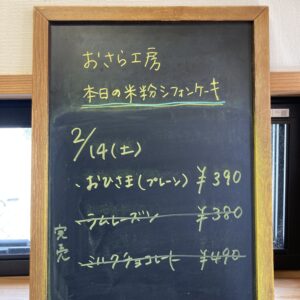 おさら工房
本日の米粉シフォンケーキ
2/14(土)
・おひさま(プレーン) ¥390
・ラムレーズン ¥380
・ミルクチョコレート ¥490
完売